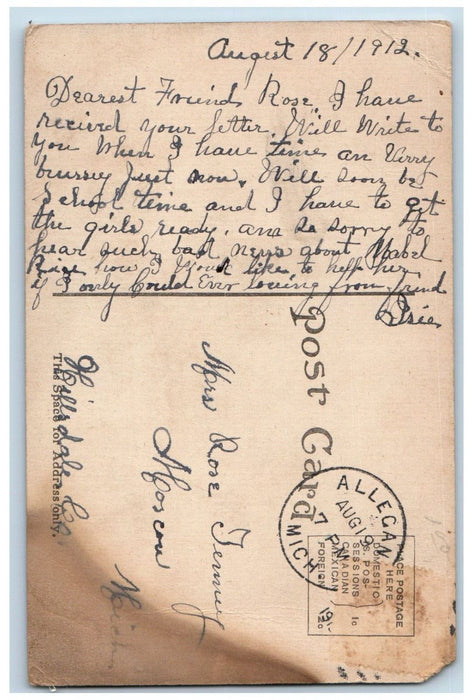 August 18/1912.
Dearest Friend Rose, I have
recived your letter. Will Write to
you when I have time am Verry
bussey Just now. Will soon be
School time and I have to get
the girls ready. am so sorry to
hear such bad news about Mabel
Rice how I Would like to help her
if I only Could Ever loving from frind
Elsie
Post Card
This Space for Address only.
Mrs Rose Tenney
Moscow
Hillsdale Co
Mich
ALLEGAN
AUG 19
7 PM
MICH.
191
PLACE POSTAGE
HERE
DOMESTIC
U.S. POS-
SESSIONS 1c
CANADIAN
MEXICAN
FOREIGN 2c